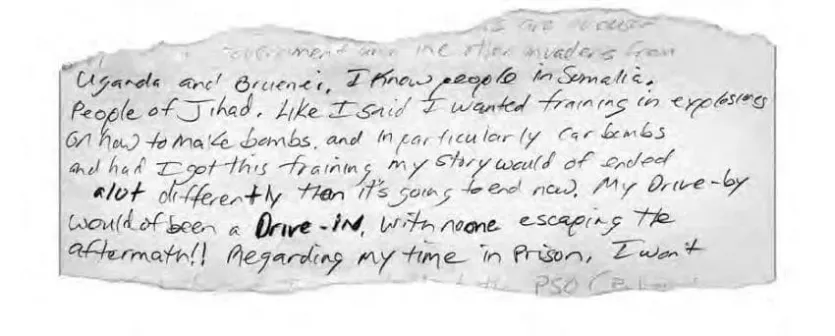 are
government and the other invaders from
Uganda and Bruenei. I Know people in Somalia.
People of Jihad. Like I said I wanted training in explosives
on how to make bombs, and in particularly car bombs
and had I got this training my story would of ended
alot differently then it's going to end now. My Drive-by
would of been a Drive-IN, with noone escaping the
aftermath!! Regarding my time in Prison, I won't
the PSO